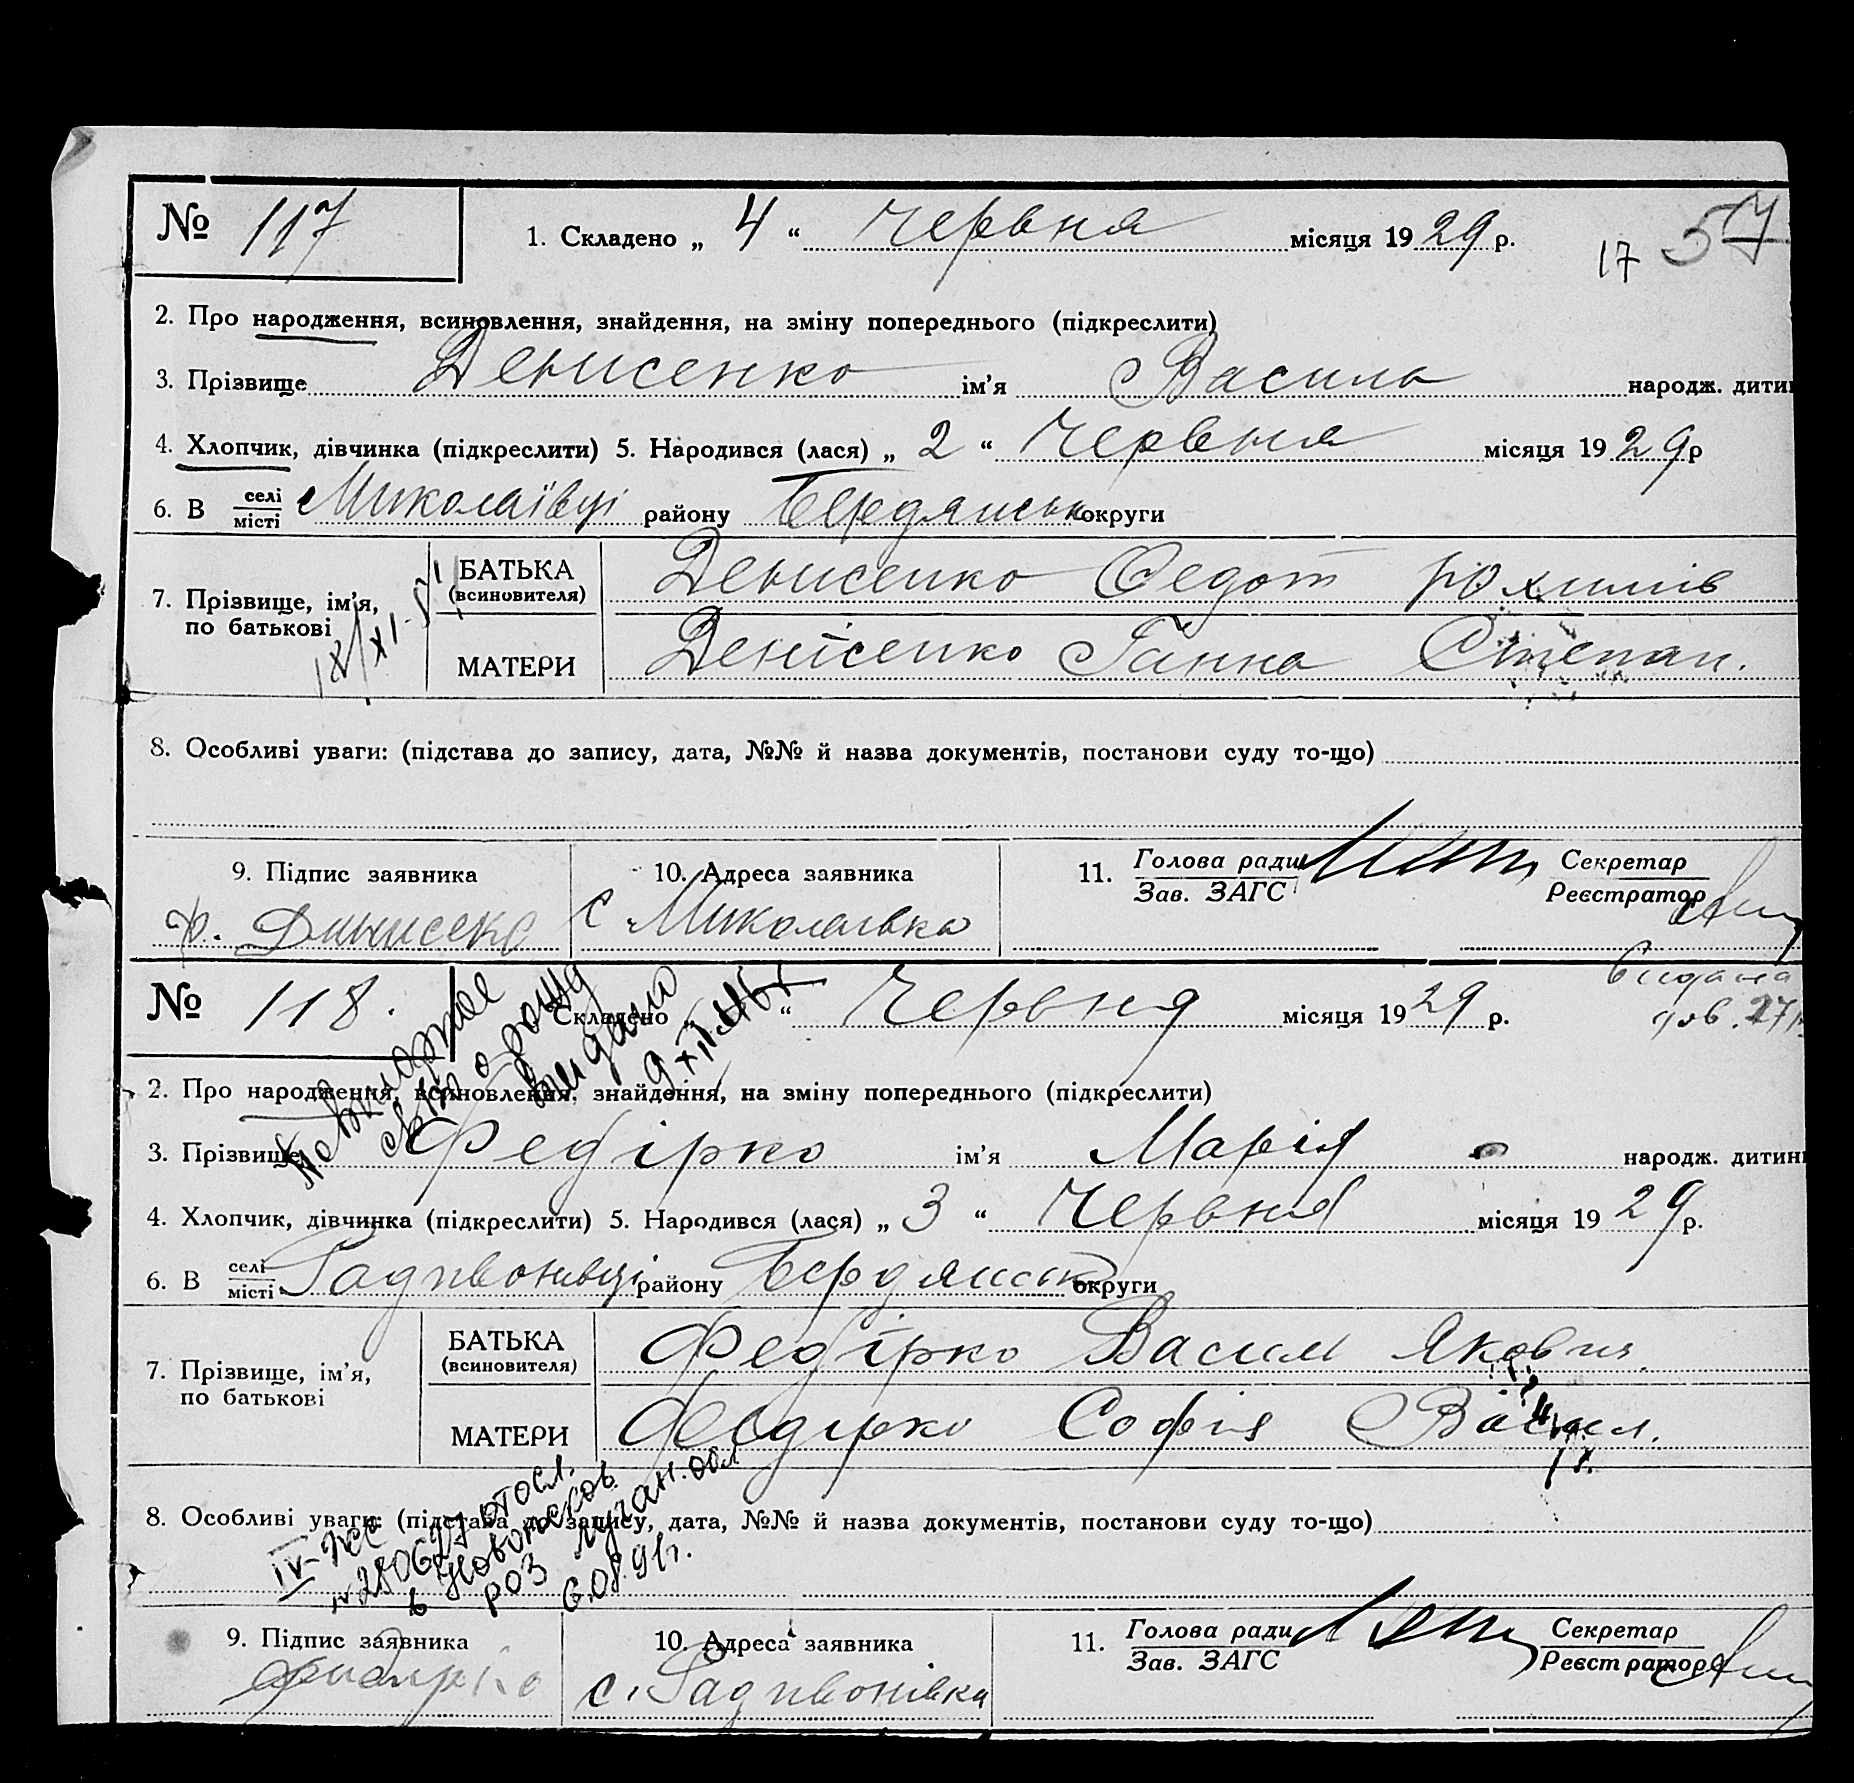 № 117 1. Складено „ 4 “ червня місяця 1929 р.
17 57
2. Про народження, всиновлення, знайдення, на зміну попереднього (підкреслити)
3. Прізвище Денисенко ім’я Василь народж. дитин
4. Хлопчик, дівчинка (підкреслити) 5. Народився (лася) „ 2 “ Червня місяця 1929 р
6. В селі місті Миколаївці району Бердянськ округи
7. Прізвище, ім’я, по батькові БАТЬКА (всиновителя) Денисенко Федот
МАТЕРИ Денісенко Ганна Степан.
8. Особливі уваги: (підстава до запису, дата, №№ й назва документів, постанови суду то-що)
9. Підпис заявника 10. Адреса заявника 11. Голова ради Зав. ЗАГС Секретар Реєстратор
с Миколаївка
№ 118. Складено „ “ Червня місяця 1929 р.
видана
9 XII
2. Про народження, всиновлення, знайдення, на зміну попереднього (підкреслити)
3. Прізвище Федірко ім’я Марія народж. дитин
4. Хлопчик, дівчинка (підкреслити) 5. Народився (лася) „ 3 “ Червня місяця 1929 р.
6. В селі місті району Бердянськ округи
7. Прізвище, ім’я, по батькові БАТЬКА (всиновителя) Федірко Васил Яковл.
МАТЕРИ Федірко Софія Васил.
8. Особливі уваги: (підстава до запису, дата, №№ й назва документів, постанови суду то-що)
IV-ЖС
№ 280627 отосл.
в Новопсков.
РОЗ Луган. обл
6.08.91г.
9. Підпис заявника 10. Адреса заявника 11. Голова ради Зав. ЗАГС Секретар Реєстратор